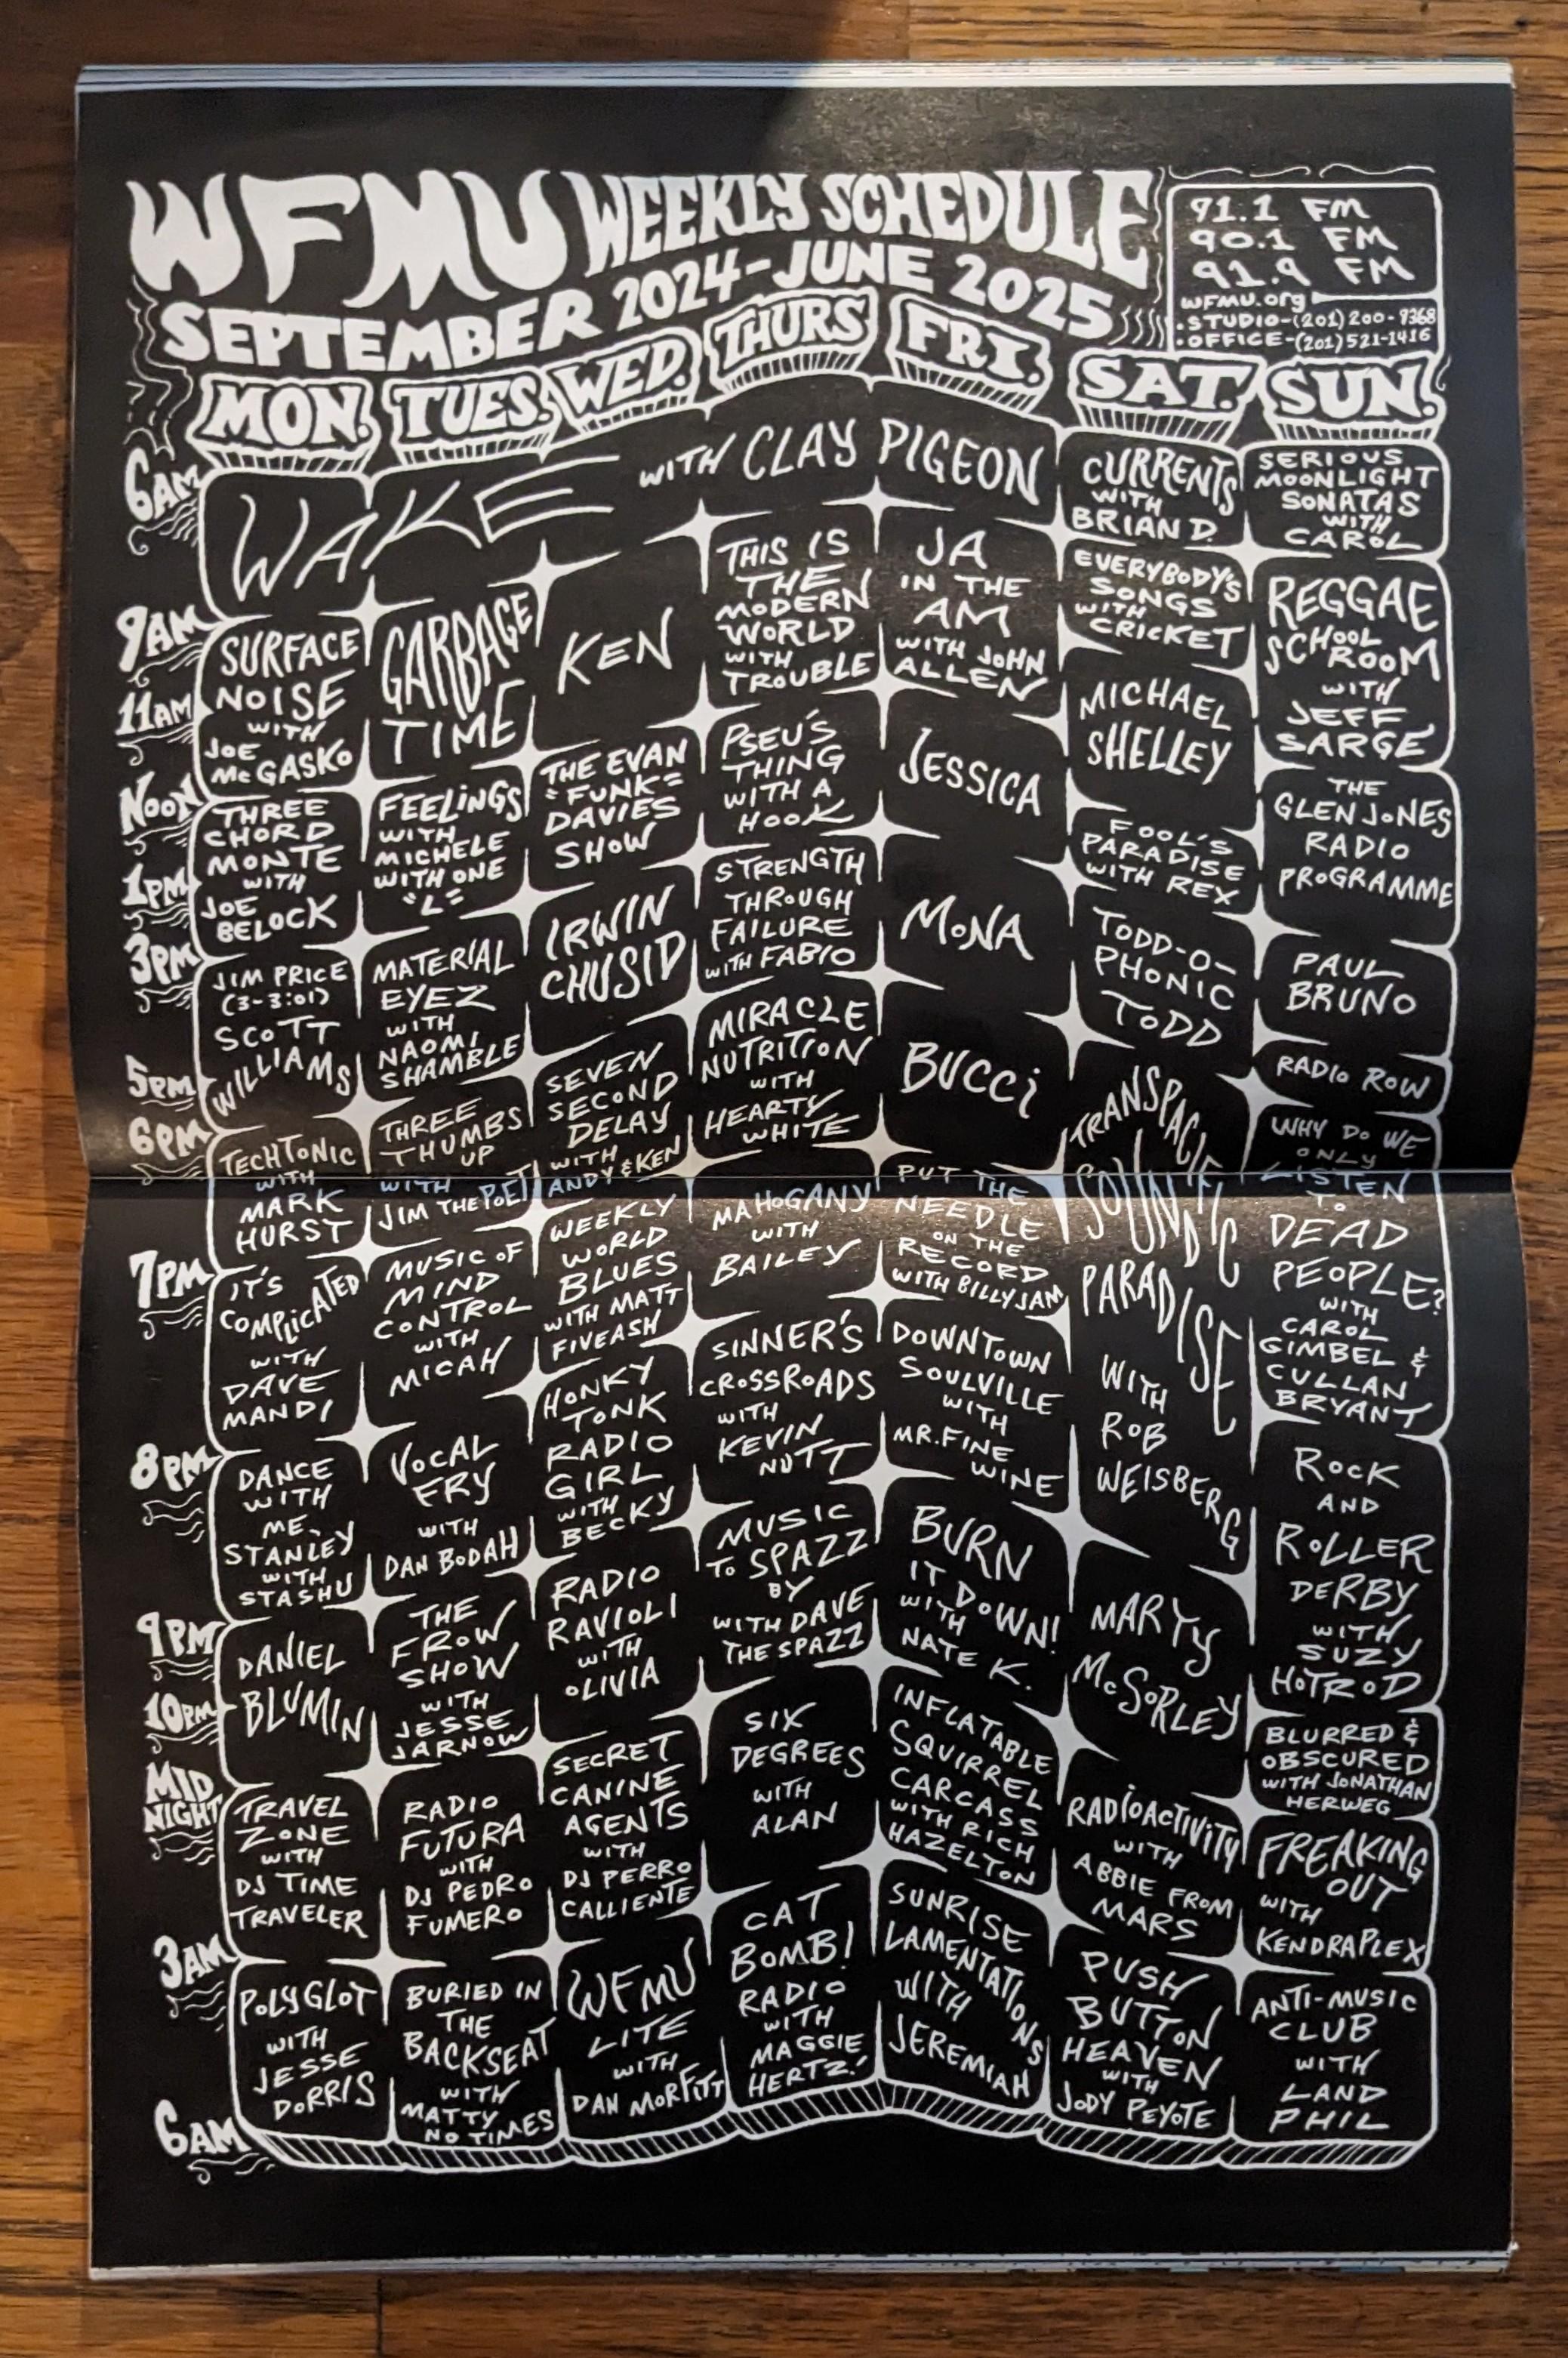 WFMU WEEKLY SCHEDULE
SEPTEMBER 2024-JUNE 2025
91.1 FM
90.1 FM
91.9 FM
WFMU.org
•STUDIO-(201)200-9368
•OFFICE-(201)521-1416
MON.
TUES.
WED.
THURS
FRI.
SAT.
SUN.
6AM
9AM
11AM
NOON
1PM
3PM
5PM
6PM
7PM
8PM
9PM
10PM
MID
NIGHT
3AM
6AM
WAKE WITH CLAY PIGEON
SURFACE
NOISE
WITH
JOE
McGASKO
THREE
CHORD
MONTE
WITH
JOE
BELOCK
JIM PRICE
(3-3:01)
SCOTT
WILLIAMS
TECHTONIC
WITH
MARK
HURST
IT'S
COMPLICATED
WITH
DAVE
MANDL
DANCE
WITH
ME,
STANLEY
WITH
STASHU
DANIEL
BLUMIN
TRAVEL
ZONE
WITH
DJ TIME
TRAVELER
POLYGLOT
WITH
JESSE
DORRIS
GARBAGE
TIME
FEELINGS
WITH
MICHELE
WITH ONE
"L"
MATERIAL
EYEZ
WITH
NAOMI
SHAMBLE
THREE
THUMBS
UP
WITH
JIM THE POET
MUSIC OF
MIND
CONTROL
WITH
MICAH
VOCAL
FRY
WITH
DAN BODAH
THE
FROW
SHOW
WITH
JESSE
JARNOW
RADIO
FUTURA
WITH
DJ PEDRO
FUMERO
BURIED IN
THE
BACKSEAT
WITH
MATTY
NO TIMES
KEN
THE EVAN
"FUNK"
DAVIES
SHOW
IRWIN
CHUSID
SEVEN
SECOND
DELAY
WITH
ANDY & KEN
WEEKLY
WORLD
BLUES
WITH MATT
FIVEASH
HONKY
TONK
RADIO
GIRL
WITH
BECKY
RADIO
RAVIOLI
WITH
OLIVIA
SECRET
CANINE
AGENTS
WITH
DJ PERRO
CALLIENTE
WFMU
LITE
WITH
DAN MORFITT
THIS IS
THE
MODERN
WORLD
WITH
TROUBLE
PSEU'S
THING
WITH A
HOOK
STRENGTH
THROUGH
FAILURE
WITH FABIO
MIRACLE
NUTRITION
WITH
HEARTY
WHITE
MAHOGANY
WITH
BAILEY
SINNER'S
CROSSROADS
WITH
KEVIN
NUTT
MUSIC
TO SPAZZ
BY
WITH DAVE
THE SPAZZ
SIX
DEGREES
WITH
ALAN
CAT
BOMB!
RADIO
WITH
MAGGIE
HERTZ!
JA
IN THE
AM
WITH JOHN
ALLEN
JESSICA
MONA
BUCCI
PUT THE
NEEDLE
ON THE
RECORD
WITH BILLY JAM
DOWNTOWN
SOULVILLE
WITH
MR. FINE
WINE
BURN
IT DOWN!
WITH
NATE K.
INFLATABLE
SQUIRREL
CARCASS
WITH RICH
HAZELTON
SUNRISE
LAMENTATIONS
WITH
JEREMIAH
CURRENTS
WITH
BRIAN D.
EVERYBODY'S
SONGS
WITH
CRICKET
MICHAEL
SHELLEY
FOOL'S
PARADISE
WITH REX
TODD-O-
PHONIC
TODD
TRANSPACIFIC
SOUND
PARADISE
WITH
ROB
WEISBERG
MARTY
McSORLEY
RADIOACTIVITY
WITH
ABBIE FROM
MARS
PUSH
BUTTON
HEAVEN
WITH
JODY PEYOTE
SERIOUS
MOONLIGHT
SONATAS
WITH
CAROL
REGGAE
SCHOOL
ROOM
WITH
JEFF
SARGE
THE
GLEN JONES
RADIO
PROGRAMME
PAUL
BRUNO
RADIO ROW
WHY DO WE
ONLY
LISTEN
TO
DEAD
PEOPLE?
WITH
CAROL
GIMBEL &
CULLAN
BRYANT
ROCK
AND
ROLLER
DERBY
WITH
SUZY
HOTROD
BLURRED &
OBSCURED
WITH JONATHAN
HERWEG
FREAKING
OUT
WITH
KENDRAPLEX
ANTI-MUSIC
CLUB
WITH
LAND
PHIL